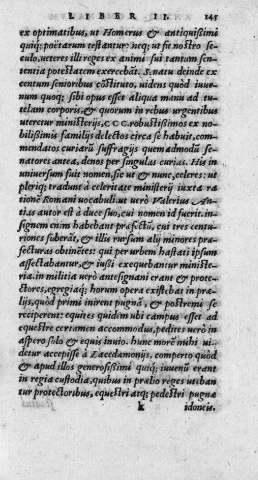 LIBER II. 145
ex optimatibus, ut Homerus & antiquissimi
quiq; poetarum testantur: neq; ut fit nostro se
culo, ueteres illi reges ex animi sui tantum sen
tentia potestatem exercebãt. Senatu deinde ex
centum senioribus cõstituto, uidens quòd iuue
num quoq; sibi opus esset aliqua manu ad tu-
telam corporis, & quorum in rebus urgentibus
uteretur ministerijs, CCC. robustissimos ex no
bilissimis familijs delectos circa se habuit, com-
mendatos curiarũ suffragijs quemadmodũ se
natores antea, denos per singulas curias. His in
uniuersum fuit nomen, sic ut & nunc, celeres: ut
pleriq; tradunt à celeritate ministerij iuxta ra
tionẽ Romani uocabuli. ut uerò Valerius An-
tias autor est à duce suo, cui nomen id fuerit. in-
signem enim habebant præfectũ, cui tres centu-
riones suberãt, & illis rursum alij minores præ-
fecturas obtinẽtes: qui per urbem hastati ipsum
assectabantur, & iussa exequebantur ministe-
ria. in militia uerò antesignani erant & prote-
ctores, egregiaq; horum opera existebat in præ-
lijs, quòd primi inirent pugnã, & postremi se
reciperent: equites quidem ubi campus esset ad
equestre certamen accommodus, pedites uerò in
aspero solo & equis inuio. hunc morẽ mihi ui-
detur accepisse à Lacedæmonijs, comperto quòd
& apud illos generosissimi quiq; iuuenũ erant
in regia custodia, quibus in prælio reges uteban
tur protectoribus, equestri atq; pedestri pugnæ
k idoneis.